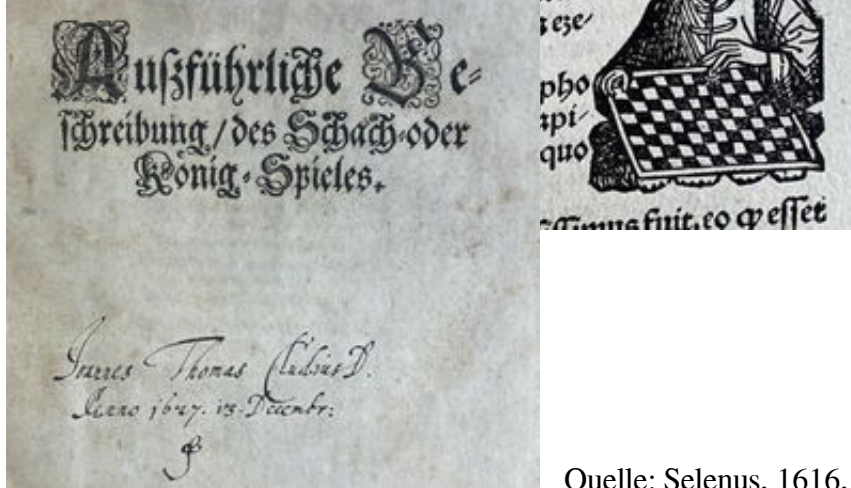 Auſzführliche Be⸗
ſchreibung / des Schach⸗oder
König⸗Spieles.
Joannes Thomas Cludius D.
Anno 1627. 13. Decembr:
s eze⸗
pho
api⸗
quo
ſſimus fuit, eo ꝙ eſſet
Quelle: Selenus, 1616.